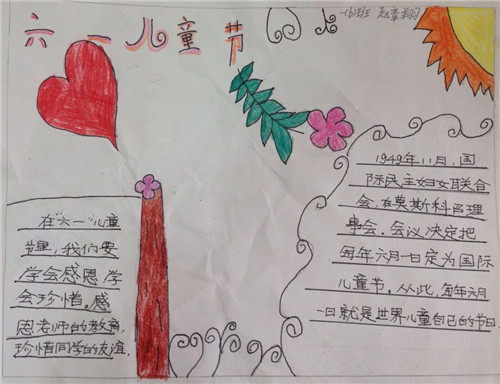 六一儿童节
一(6)班 赵章翔
在六一儿童
节里,我们要
学会感恩,学
会珍惜。感
恩老师的教育,
珍惜同学的友谊,
1949年11月,国
际民主妇女联合
会在莫斯科召理
事会,会议决定把
每年六月一日定为国际
儿童节,从此,每年六月
一日就是世界儿童自己的节日